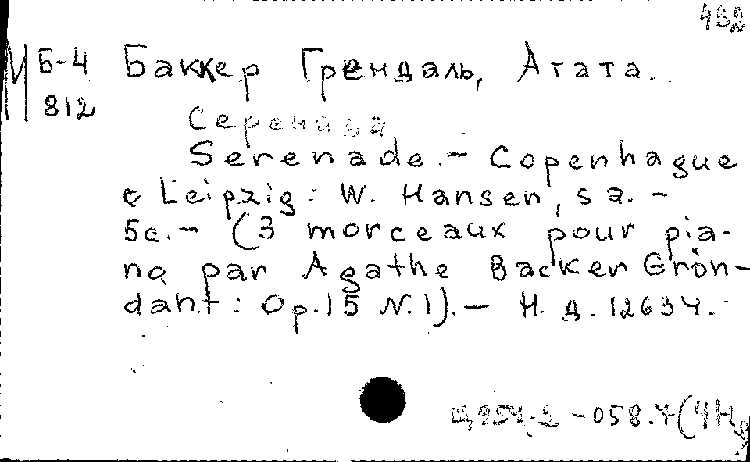 М Б-4 Баккер Грендаль, Агата.
812
Серенада
Serenade. - Copenhague
e Leipzig: W. Hansen, s a. -
5c. - (3 morceaux pour pia-
no par Agathe Backer Grön-
dahl: Op. 15 N. 1). - Н. д. 12634.